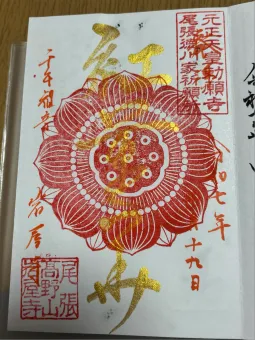 元正天皇勅願寺
尾張徳川家祈願所
令和七年
十九日
紅
千手観音
岩屋
尾張
高野山
岩屋寺